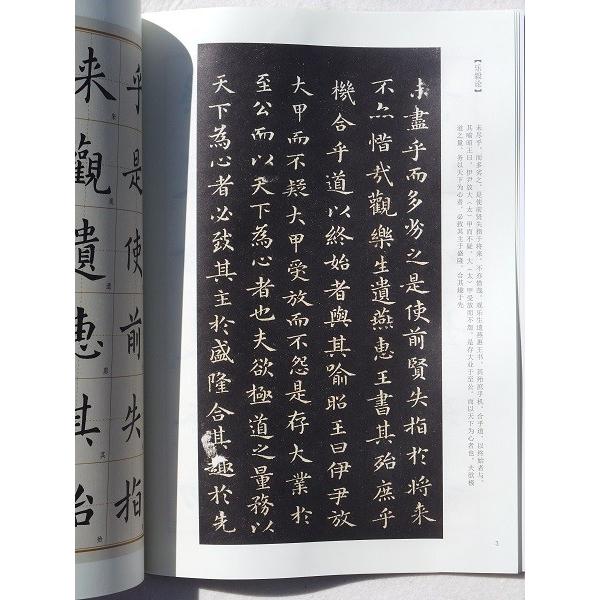 【乐毅论】
未尽乎，而多劣之。是使前贤失指于将来，不亦惜哉。观乐生遗燕惠王书，其殆庶乎机，合乎道，以终始者与。
其喻昭王曰：伊尹放大（太）甲而不疑，大（太）甲受放而不怨，是存大业于至公，而以天下为心者也。夫欲极
道之量，务以天下为心者，必致其主于盛隆，合其趣于先
未盡乎而多劣之是使前賢失指於將来
不亦惜哉觀樂生遺燕惠王書其殆庶乎
機合乎道以終始者與其喻昭王曰伊尹放
大甲而不疑大甲受放而不怨是存大業於
至公而以天下為心者也夫欲極道之量務以
天下為心者必致其主於盛隆合其趣於先
3
乎是使前失指
来觀遺惠其殆